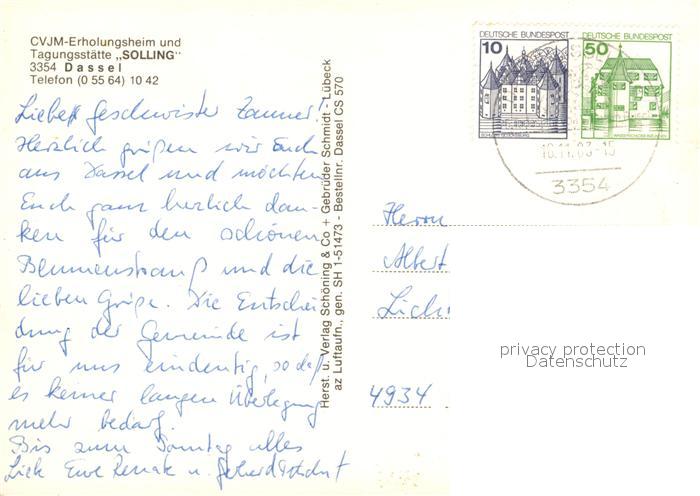 CVJM-Erholungsheim und
Tagungsstätte „SOLLING"
3354 Dassel
Telefon (0 55 64) 10 42
Liebe Geschwister Zanner!
Herzlich grüßen wir Euch
aus Dassel und möchten
Euch ganz herzlich dan-
ken für den schönen
Blumenstrauß und die
lieben Grüße. Die Entschei
dung der Gemeinde ist
für uns eindeutig, so daß
es keiner langen Überlegung
mehr bedarf.
Bis zum Sonntag alles
Liebe Eure Renate u. Gerhard
Herst. u. Verlag Schöning & Co + Gebrüder Schmidt - Lübeck
az Luftaufn., gen. SH 1-51473 - Bestellnr. Dassel CS 570
DEUTSCHE BUNDESPOST
10
DEUTSCHE BUNDESPOST
50
3354
Herrn
Albert
4934
privacy protection
Datenschutz